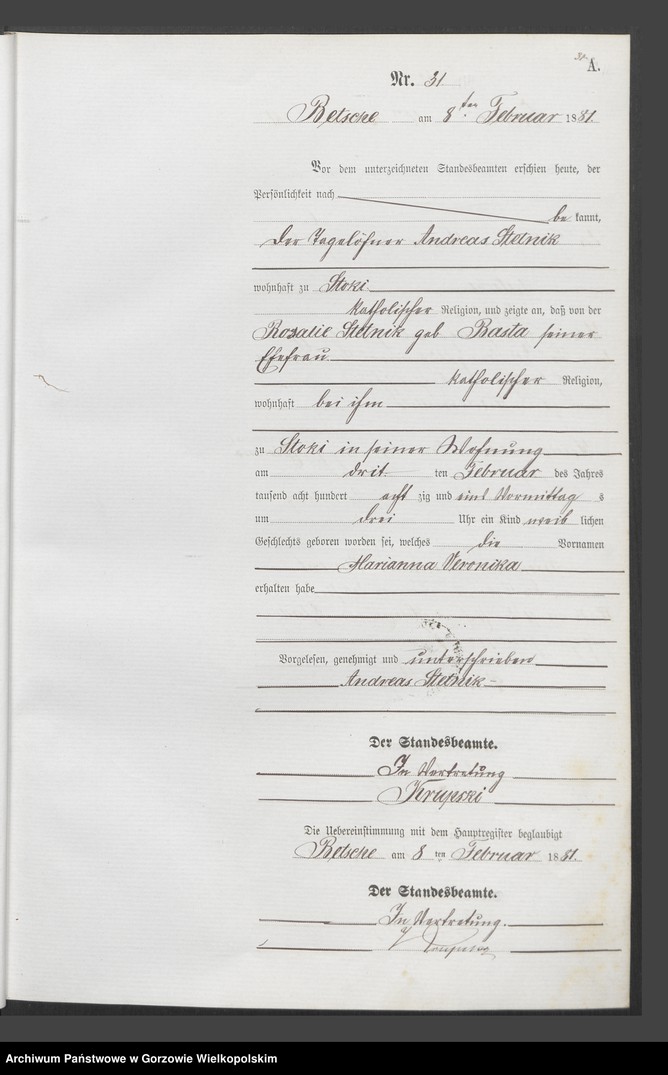 A.
Nr. 31
Betsche am 8ten Februar 1881.
Vor dem unterzeichneten Standesbeamten erschien heute, der
Persönlichkeit nach
be kannt,
der Tagelöhner Andreas Stelnik
wohnhaft zu Stoki
katholischer Religion, und zeigte an, daß von der
Rosalie Stelnik geb Basta seiner
Ehefrau
katholischer Religion,
wohnhaft bei ihm
zu Stoki in seiner Wohnung
am drit ten Februar des Jahres
tausend acht hundert acht zig und eins Vormittag s
um drei Uhr ein Kind weib lichen
Geschlechts geboren worden sei, welches die Vornamen
Marianna Veronika
erhalten habe
Vorgelesen, genehmigt und unterschrieben
Andreas Stelnik
Der Standesbeamte.
In Vertretung
Krupski
Die Uebereinstimmung mit dem Hauptregister beglaubigt
Betsche am 8 ten Februar 1881.
Der Standesbeamte.
In Vertretung.
Archiwum Państwowe w Gorzowie Wielkopolskim